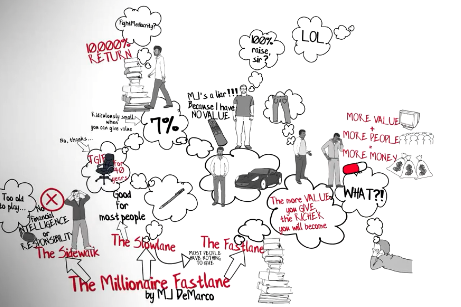 FightMediocrity?
10,000%
RETURN
100%
raise,
sir?
LOL
Ridiculously small
when
you can give value
7%
MJ's a liar!!!
Because I have
NO VALUE.
MORE VALUE
+
MORE PEOPLE
=
MORE MONEY
No, thanks...
TGIF
for
40
years
WHAT?!
Too old
to play...
No
Financial
INTELLIGENCE
or
RESPONSIBILITY
Good
for
most people
The more VALUE
you GIVE,
the RICHER
you will become
The Sidewalk
The Slowlane
MOST PEOPLE
HAVE NOTHING
TO GIVE
The Fastlane
The Millionaire Fastlane
by MJ DeMarco